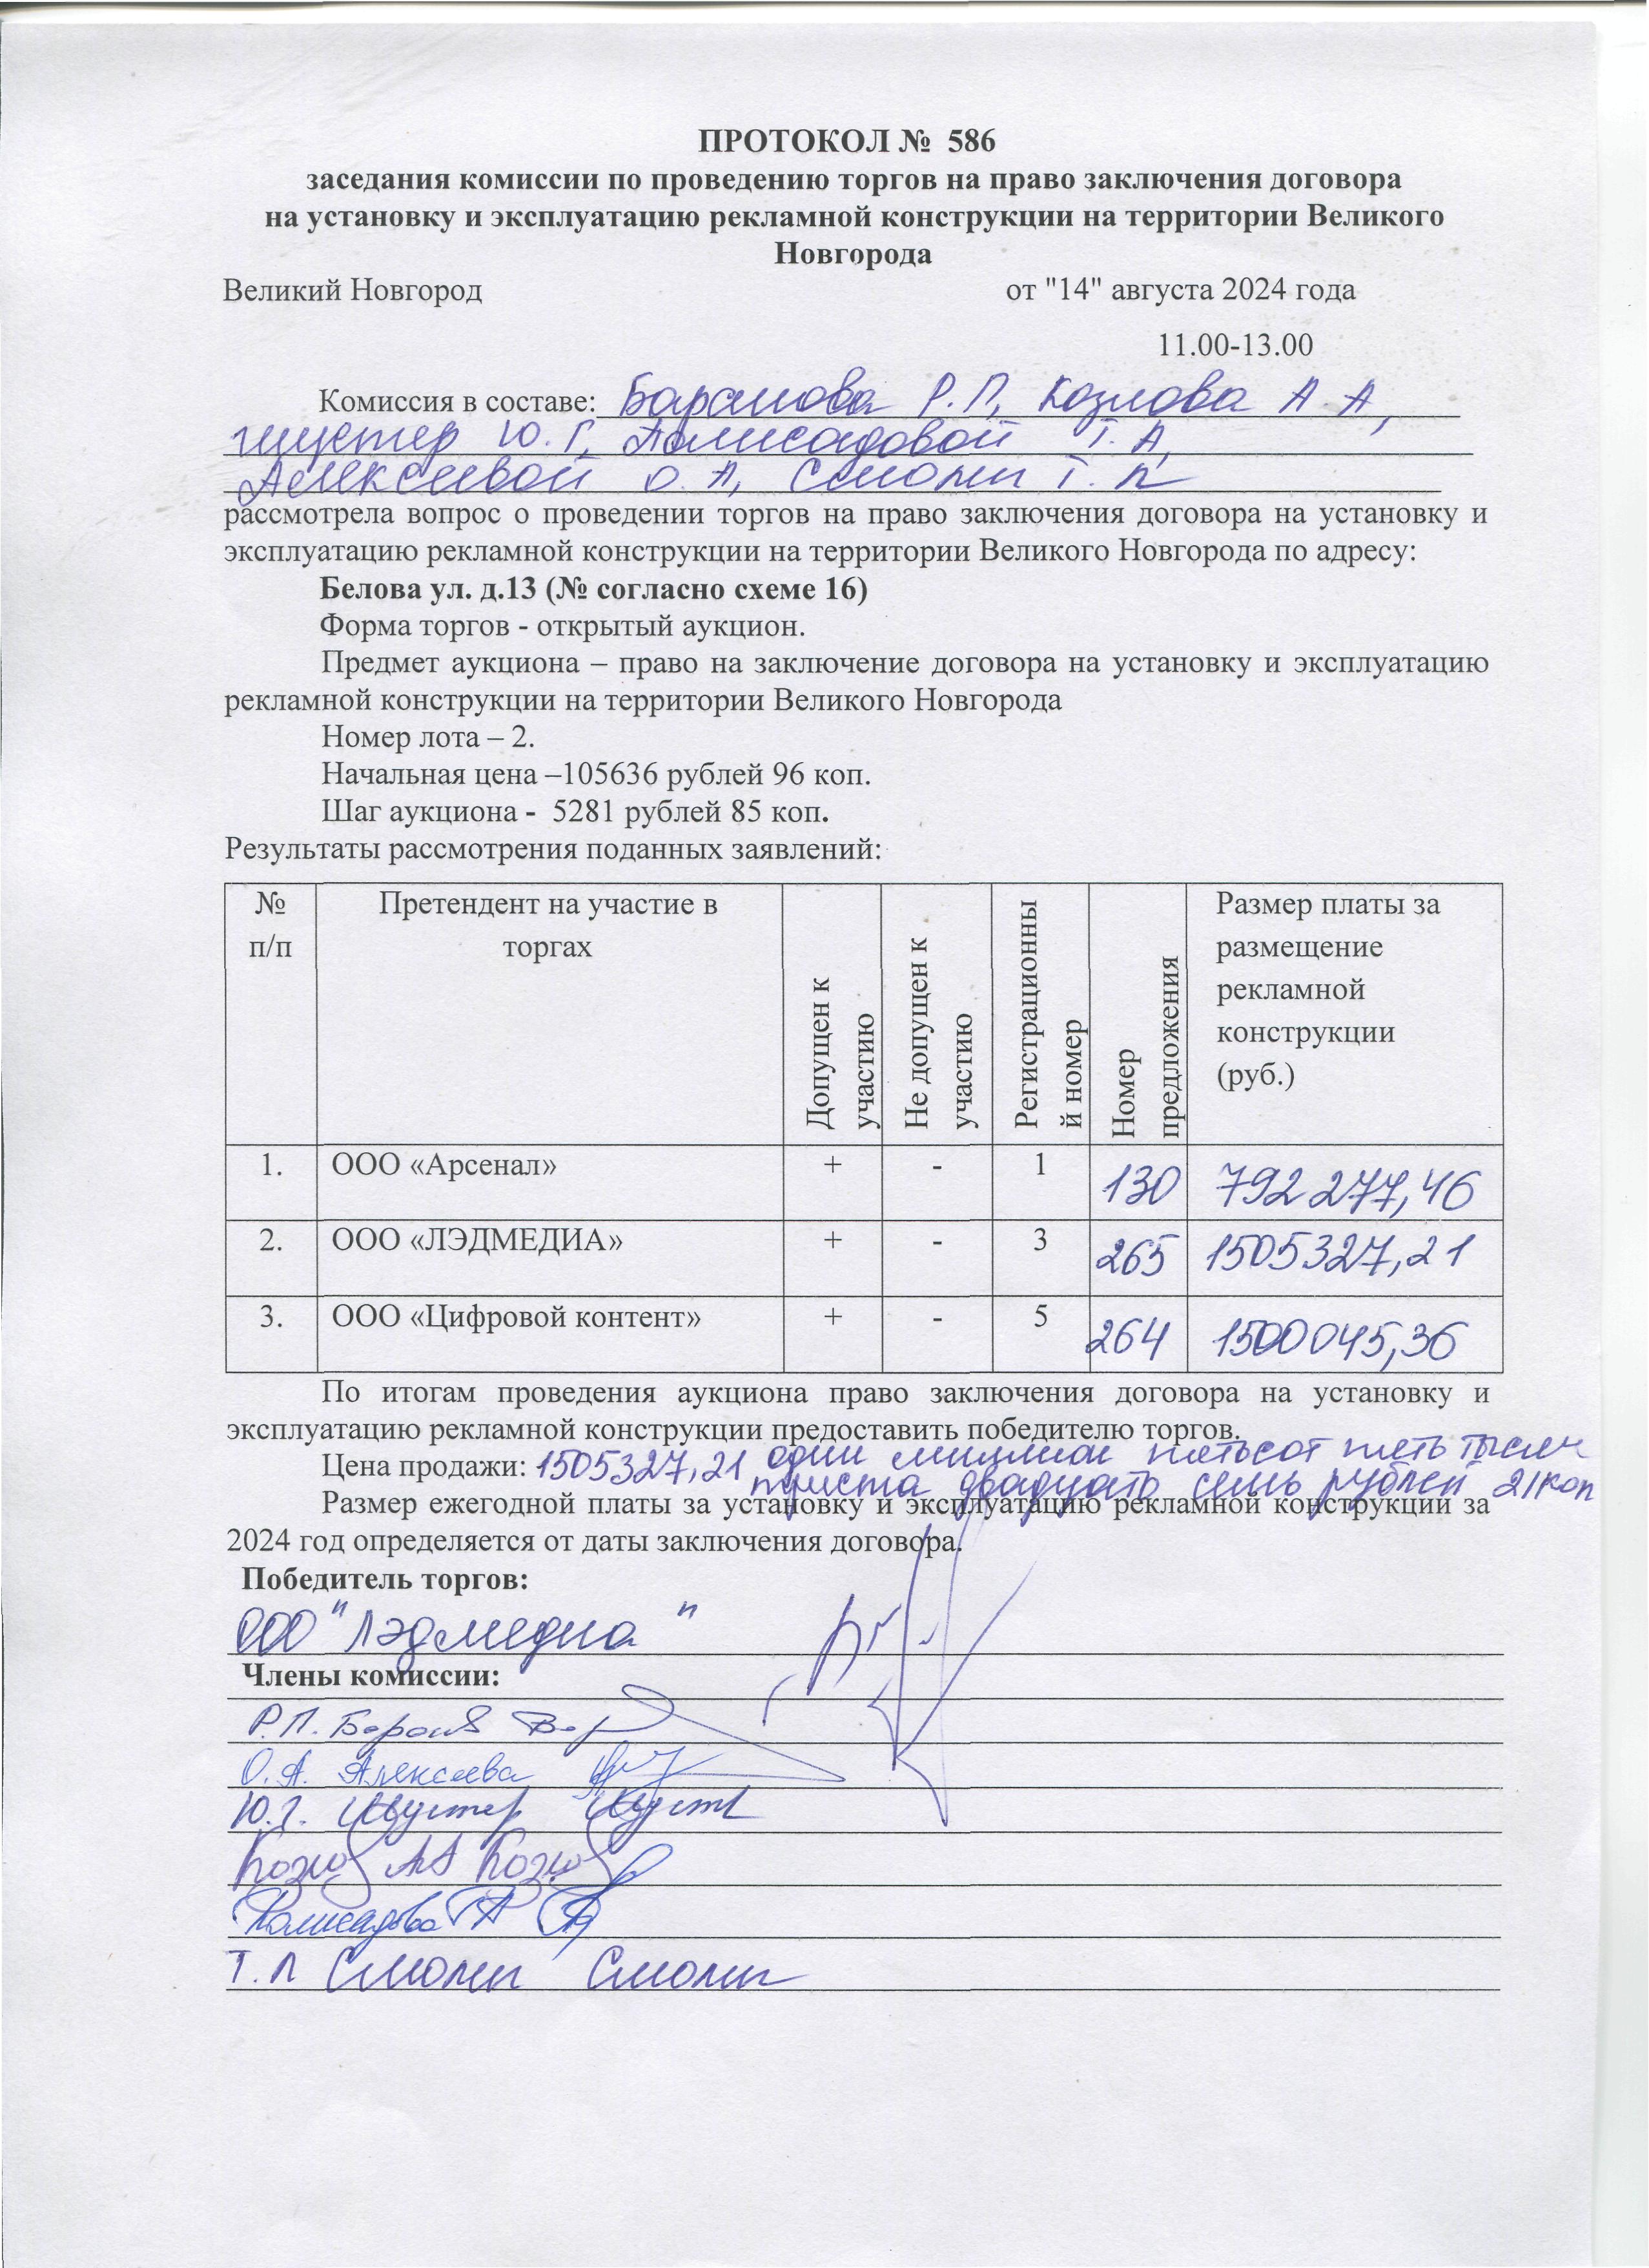 ПРОТОКОЛ № 586
заседания комиссии по проведению торгов на право заключения договора
на установку и эксплуатацию рекламной конструкции на территории Великого
Новгорода
Великий Новгород от "14" августа 2024 года
11.00-13.00
Комиссия в составе: Баранова Р.П, Козлова А.А,
Шустер Ю.Г, Палисадовой Т.А,
Алексеевой О.А, Смолин Т.Л
рассмотрела вопрос о проведении торгов на право заключения договора на установку и
эксплуатацию рекламной конструкции на территории Великого Новгорода по адресу:
Белова ул. д.13 (№ согласно схеме 16)
Форма торгов - открытый аукцион.
Предмет аукциона – право на заключение договора на установку и эксплуатацию
рекламной конструкции на территории Великого Новгорода
Номер лота – 2.
Начальная цена –105636 рублей 96 коп.
Шаг аукциона - 5281 рублей 85 коп.
Результаты рассмотрения поданных заявлений:
№
п/п
Претендент на участие в
торгах
Допущен к
участию
Не допущен к
участию
Регистрационны
й номер
Номер
предложения
Размер платы за
размещение
рекламной
конструкции
(руб.)
1. ООО «Арсенал» + - 1 130 792 277,46
2. ООО «ЛЭДМЕДИА» + - 3 265 1505327,21
3. ООО «Цифровой контент» + - 5 264 1500045,36
По итогам проведения аукциона право заключения договора на установку и
эксплуатацию рекламной конструкции предоставить победителю торгов.
Цена продажи: 1505327,21 один миллион пятьсот пять тысяч
триста двадцать семь рублей 21 коп
Размер ежегодной платы за установку и эксплуатацию рекламной конструкции за
2024 год определяется от даты заключения договора.
Победитель торгов:
ООО "Лэдмедиа"
Члены комиссии:
Р.П. Баранов
О.А. Алексеева
Ю.Г. Шустер Шуст
Палисадова ТА
Т.Л Смолин Смолин